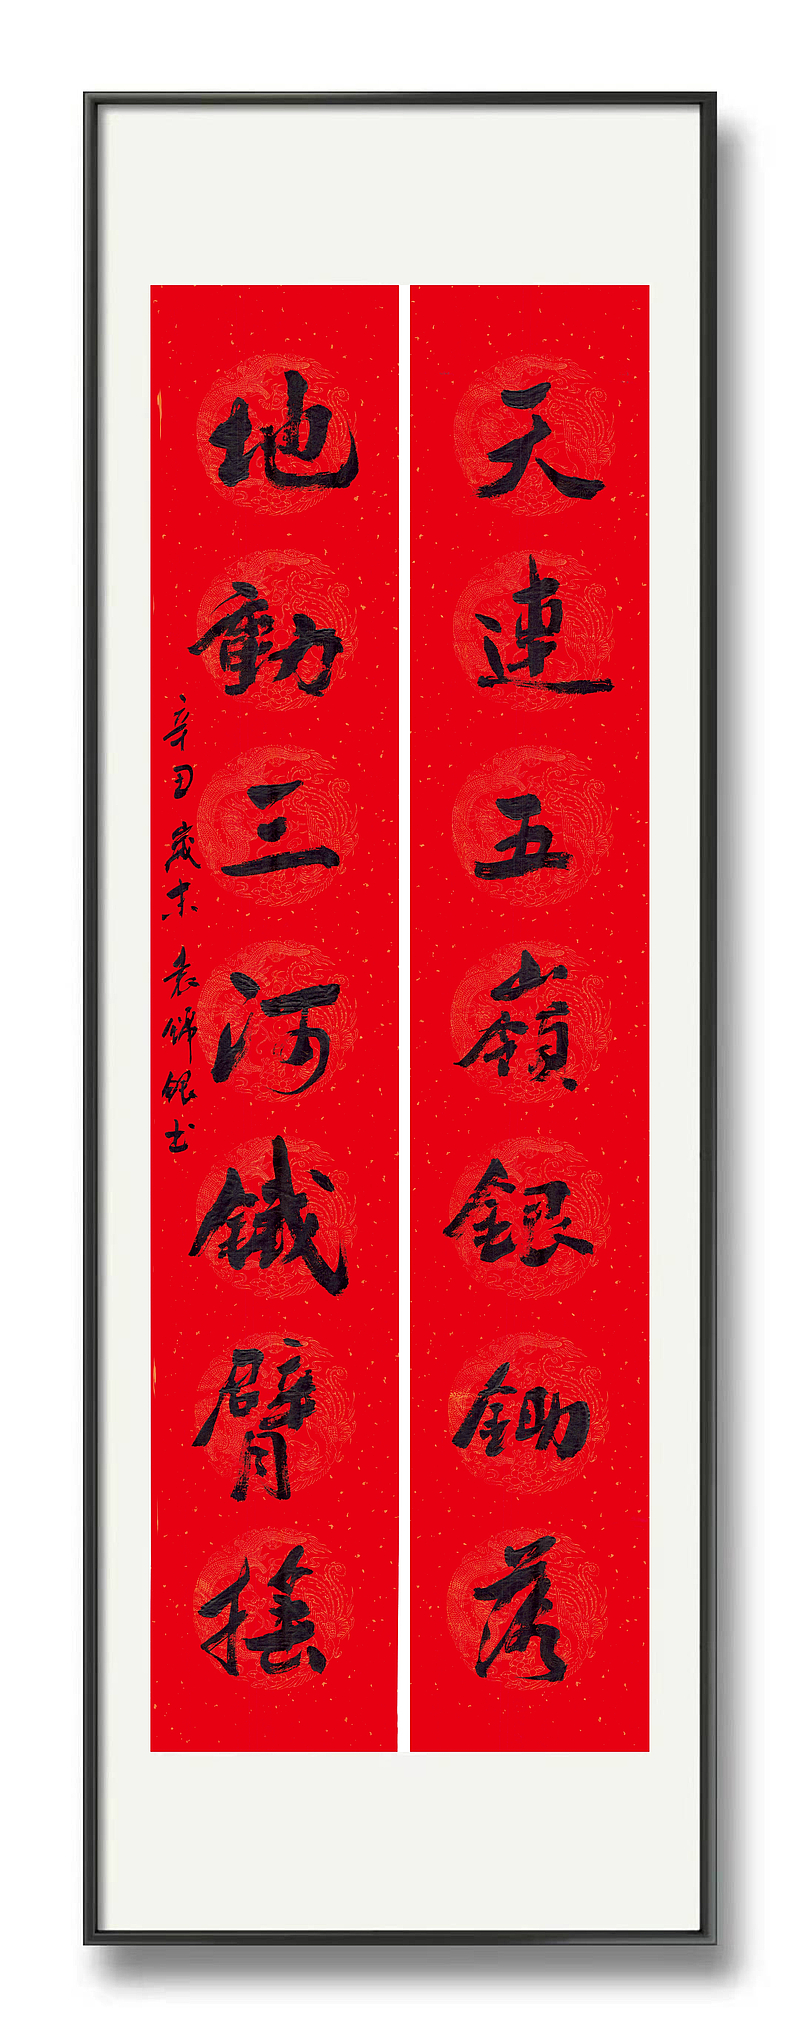 天連五嶺銀鋤落
地動三河鐵臂搖
辛丑歲末 袁錦銀書